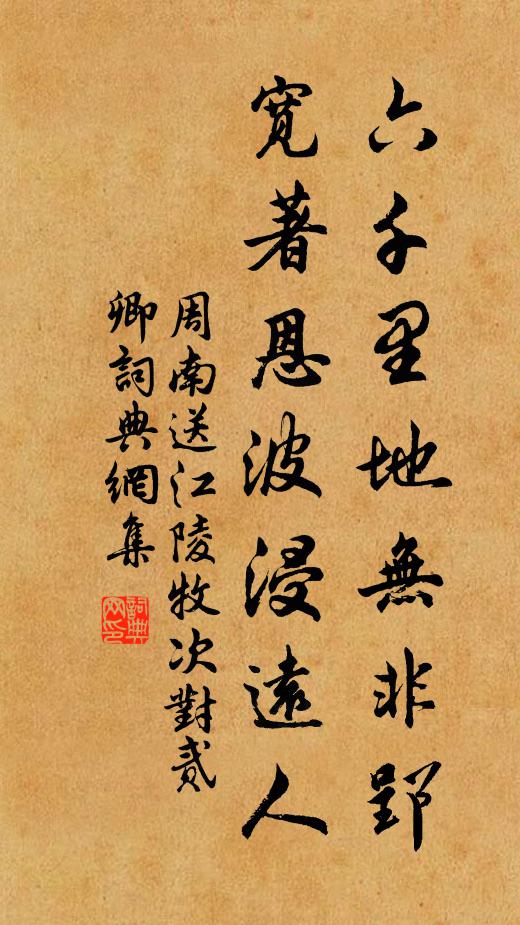 六千里地無非郢
寬著恩波浸遠人
周南送江陵牧次對貳
卿詞典網集
詞典
网印